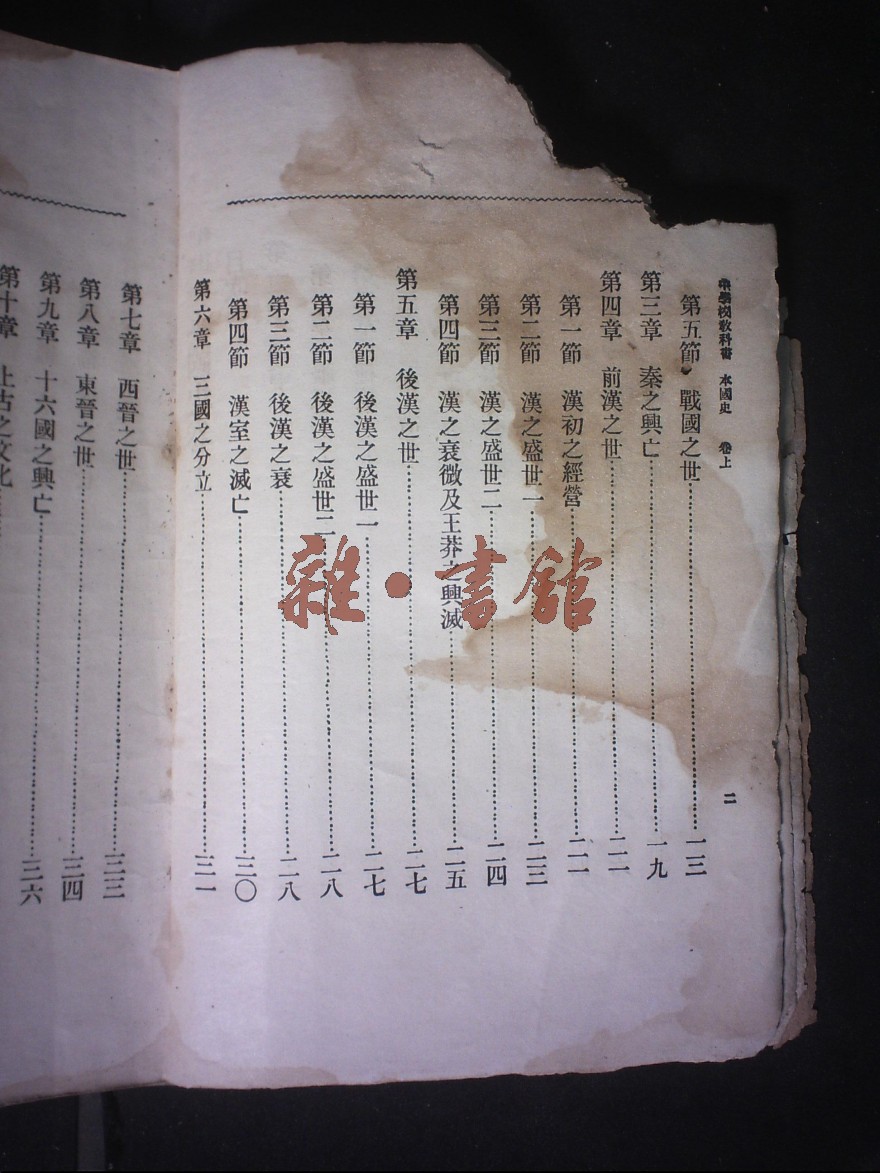 中學校教科書 本國史 卷上 二
第五節 戰國之世……一三
第三章 秦之興亡……一九
第四章 前漢之世……二一
第一節 漢初之經營……二一
第二節 漢之盛世一……二三
第三節 漢之盛世二……二四
第四節 漢之衰微及王莽之興滅……二五
第五章 後漢之世……二七
第一節 後漢之盛世一……二七
第二節 後漢之盛世二……二八
第三節 後漢之衰……二八
第四節 漢室之滅亡……三〇
第六章 三國之分立……三一
第七章 西晉之世……三三
第八章 東晉之世……三四
第九章 十六國之興亡……三六
第十章 上古之文化……
雜·書館